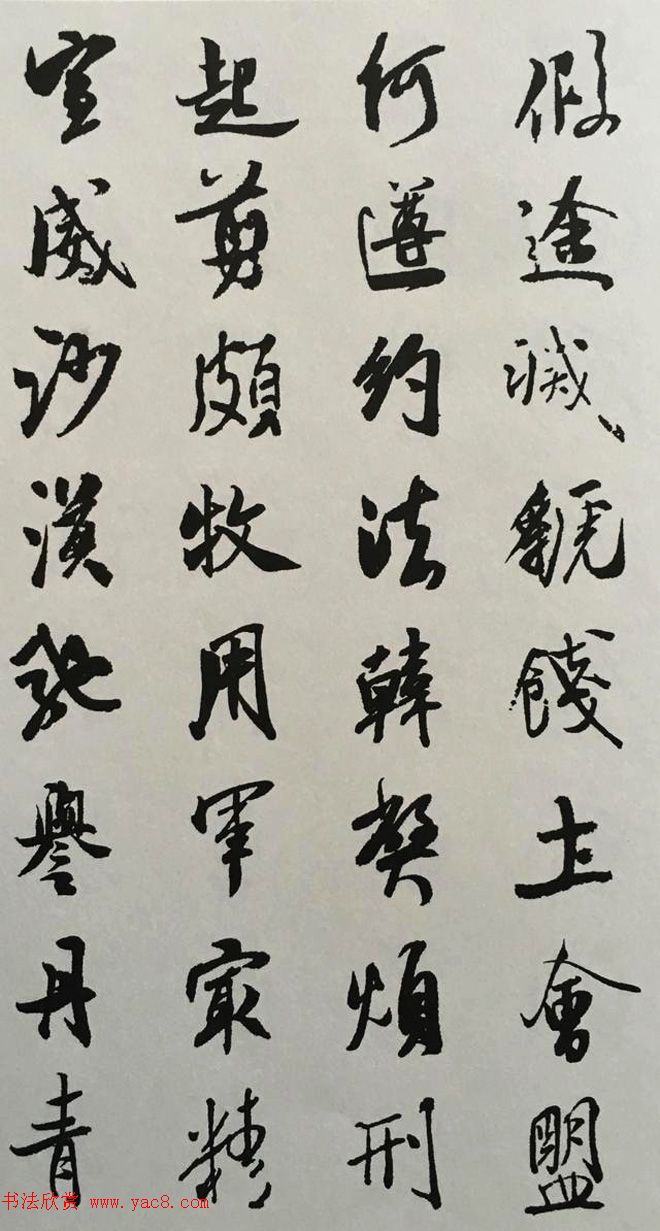 假途滅虢餞圡會盟
何遵約法韓弊煩刑
起剪頗牧用軍冣精
宣威沙漠馳譽丹青
书法欣赏 www.yac8.com